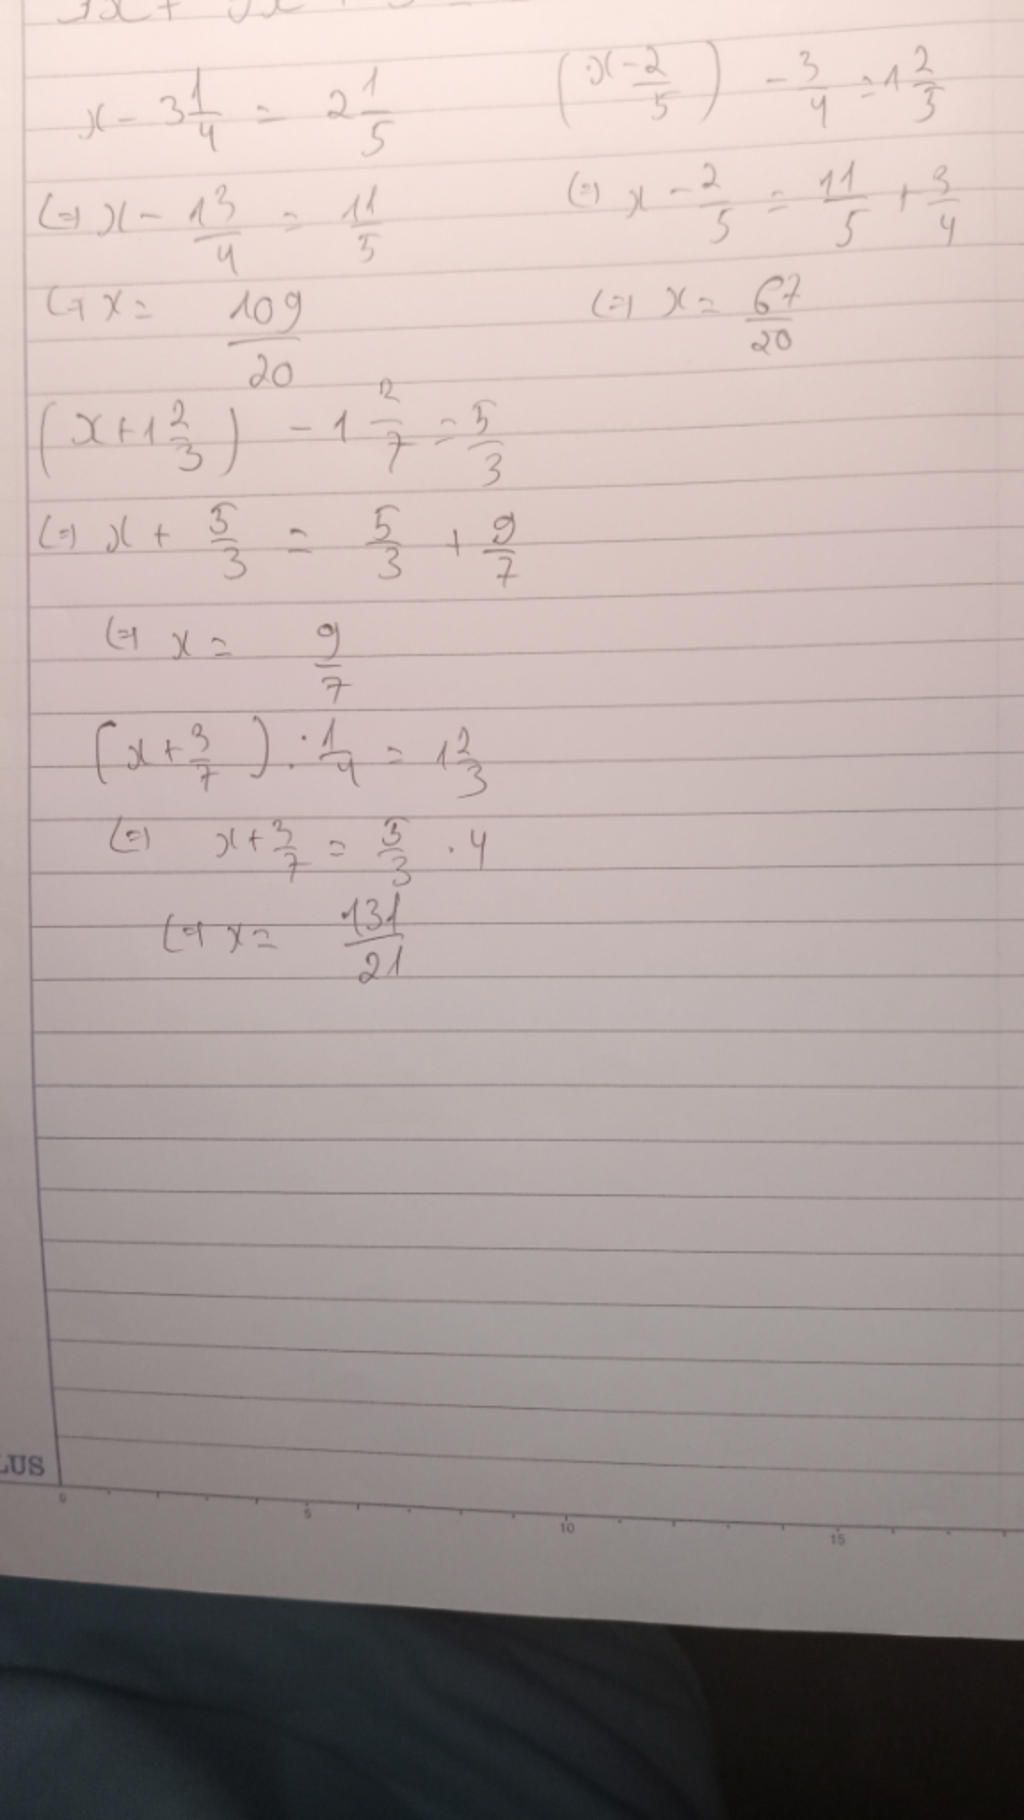 x - 3 1/4 = 2 1/5
(=) x - 13/4 = 11/5
(=) x = 109/20
(x - 2/5) - 3/4 = 1 2/3
(=) x - 2/5 = 11/5 + 3/4
(=) x = 67/20
(x + 1 2/3) - 1 2/7 = 5/3
(=) x + 5/3 = 5/3 + 9/7
(=) x = 9/7
(x + 3/7) : 1/4 = 1 2/3
(=) x + 3/7 = 5/3 . 4
(=) x = 131/21
LUS
0 5 10 15